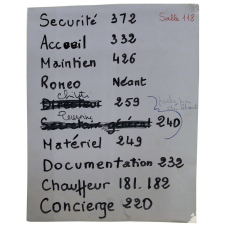 Salle 118
Securité 372
Accueil 332
Maintien 426
Roneo Néant
Directeur 259
Secretaire général 240
Matériel 249
Documentation 232
Chauffeur 181.182
Concierge 220